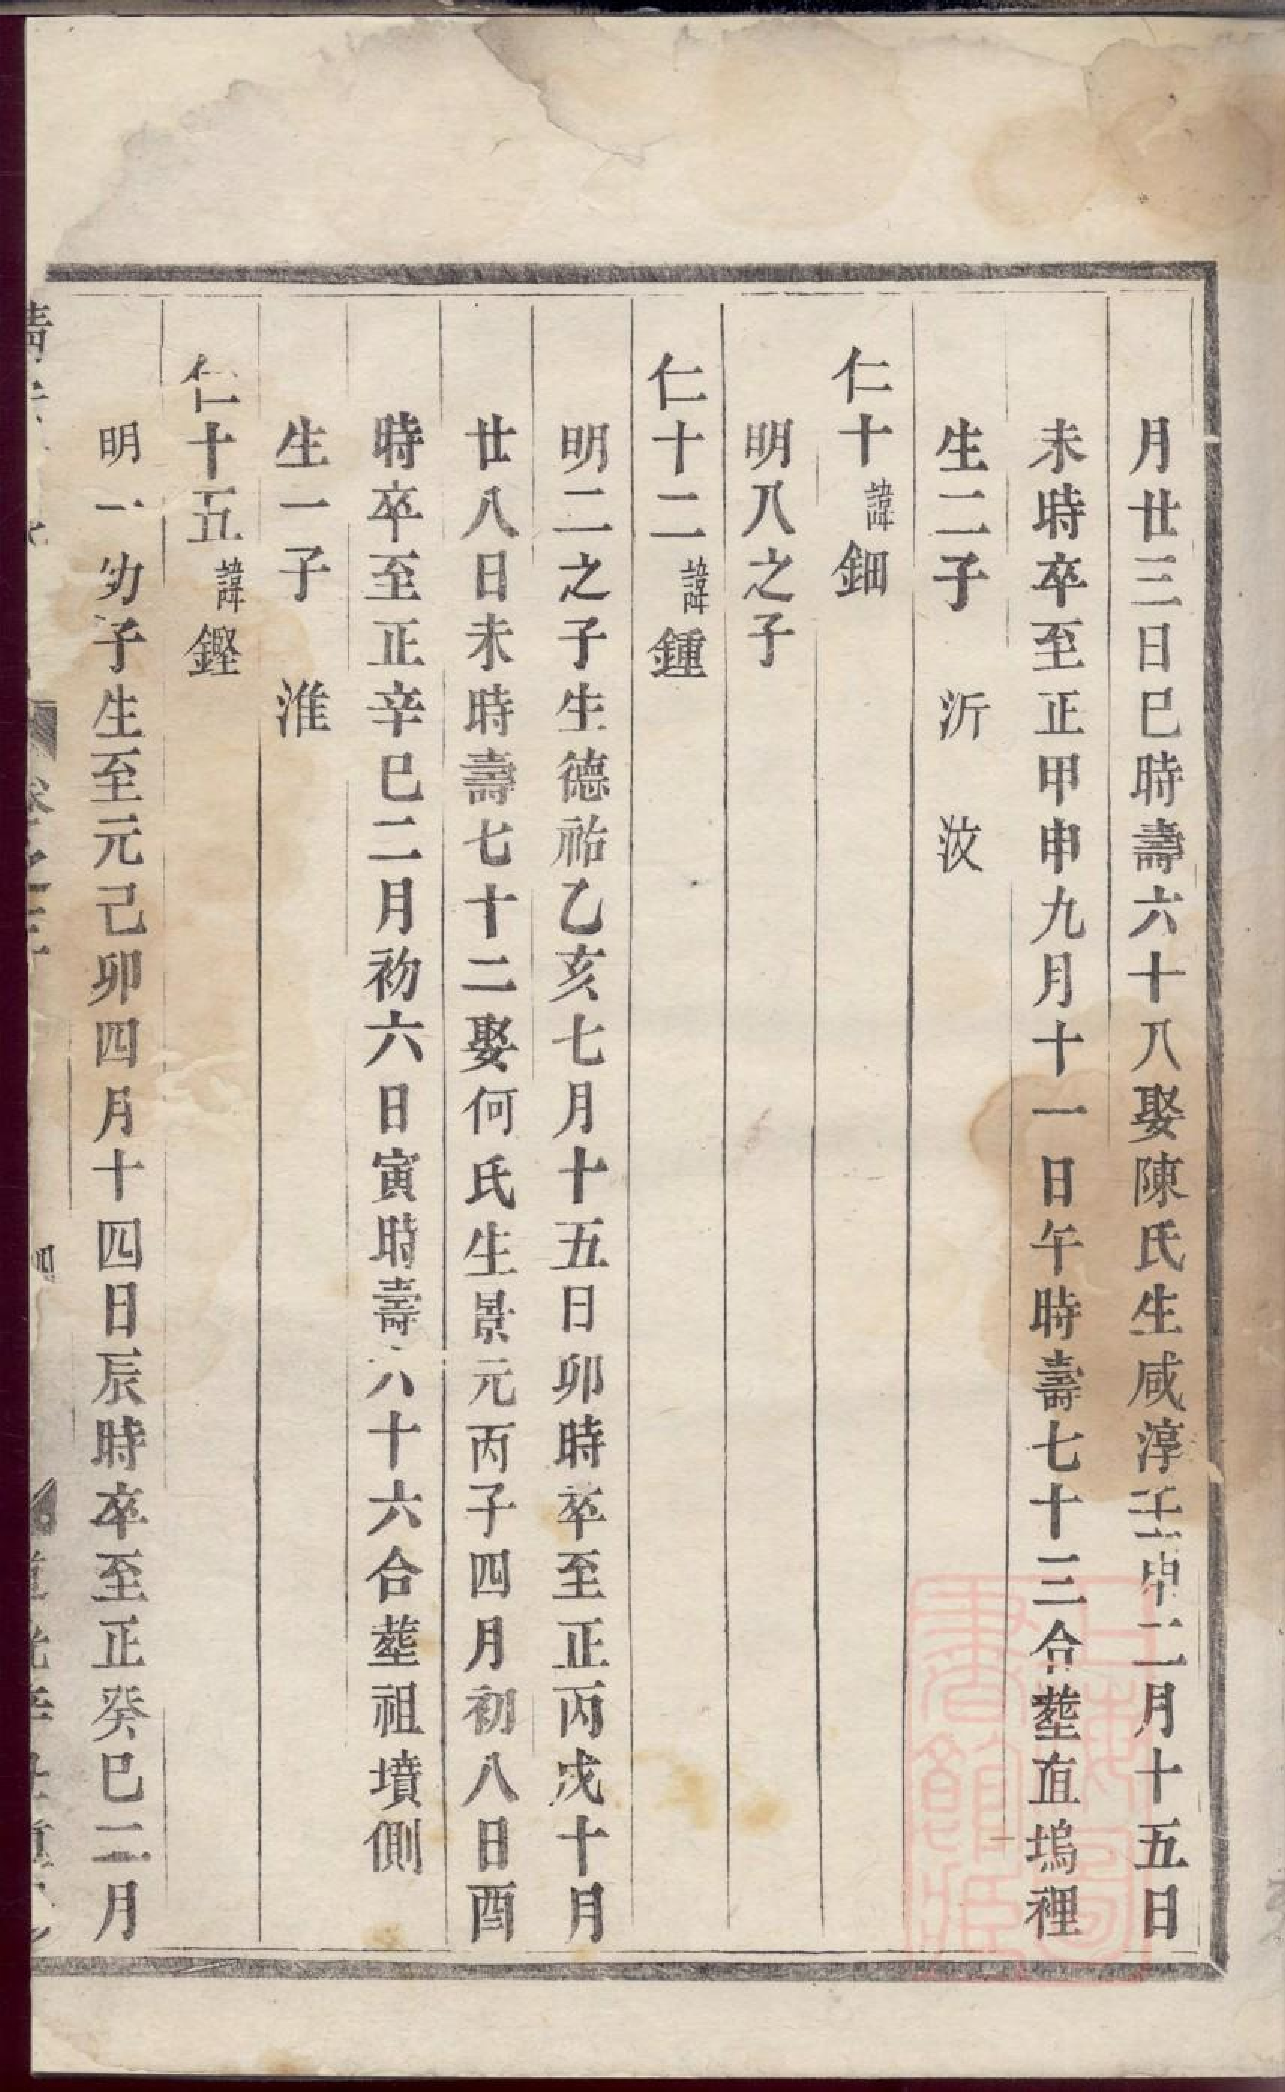 月廿三日巳時壽六十八娶陳氏生咸淳壬申二月十五日
未時卒至正甲申九月十一日午時壽七十三合塟直塢裡
生二子 沂 汶
仁十諱鈿
明八之子
仁十二諱鍾
明二之子生德祐乙亥七月十五日卯時卒至正丙戌十月
廿八日未時壽七十二娶何氏生景元丙子四月初八日酉
時卒至正辛巳二月初六日寅時壽六十六合塟祖墳側
生一子 淮
仁十五諱鏗
明一幼子生至元己卯四月十四日辰時卒至正癸巳二月
四